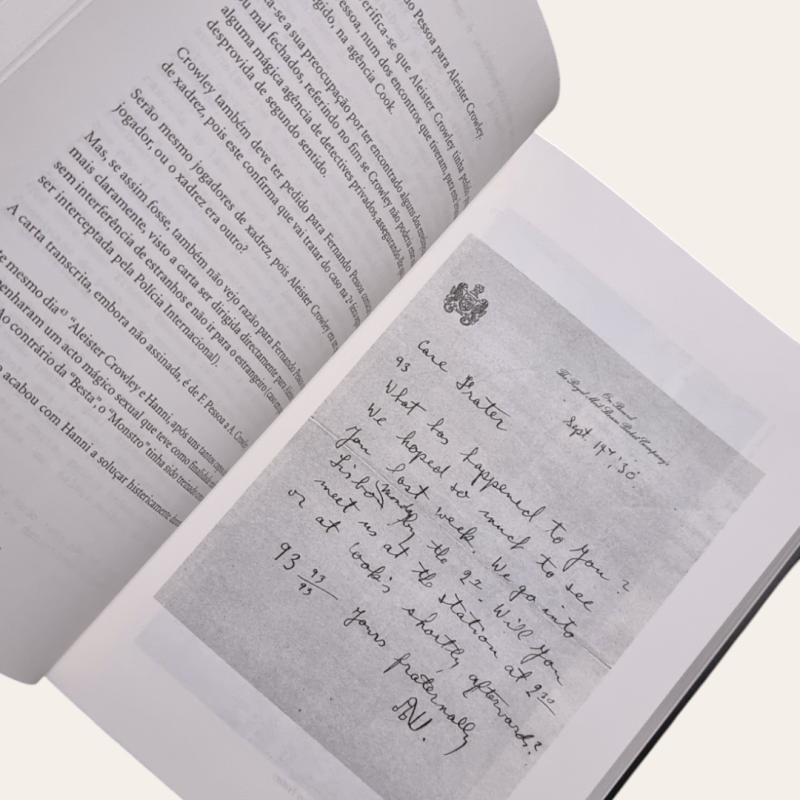 do Pessoa para Aleister Crowley.
verifica-se que Aleister Crowley tinha
essoa, num dos encontros que tiveram, para
gido, na agência Cook.
a-se a sua preocupação por ter encontrado alguns dos
ou mal fechados, referindo no fim se Crowley não poderia
alguma mágica agência de detectives privados, assegurando
desprovida de segundo sentido.
Crowley também deve ter pedido para Fernando Pessoa
de xadrez, pois este confirma que vai tratar do caso na 2ª
Serão mesmo jogadores de xadrez, pois Aleister Crowley era
jogador, ou o xadrez era outro?
Mas, se assim fosse, também não vejo razão para Fernando Pessoa
mais claramente, visto a carta ser dirigida directamente para
sem interferência de estranhos e não ir para o estrangeiro
ser interceptada pela Polícia Internacional).
A carta transcrita, embora não assinada, é de F. Pessoa a A.
te mesmo dia "Aleister Crowley e Hanni, após uns tantos
penharam um acto mágico sexual que teve como
Ao contrário da "Besta", o "Monstro" tinha sido
o acabou com Hanni a soluçar histericamente
On Board
The Royal Mail Steam Packet Company's
Sept 19
Care Frater
93
What has happened to you?
We hoped so much to see
you last week. We go into
Lisbon the 22. Will you
meet us at the station at 2 30
or at Cook's shortly afterwards?
93 93/93 Yours fraternally